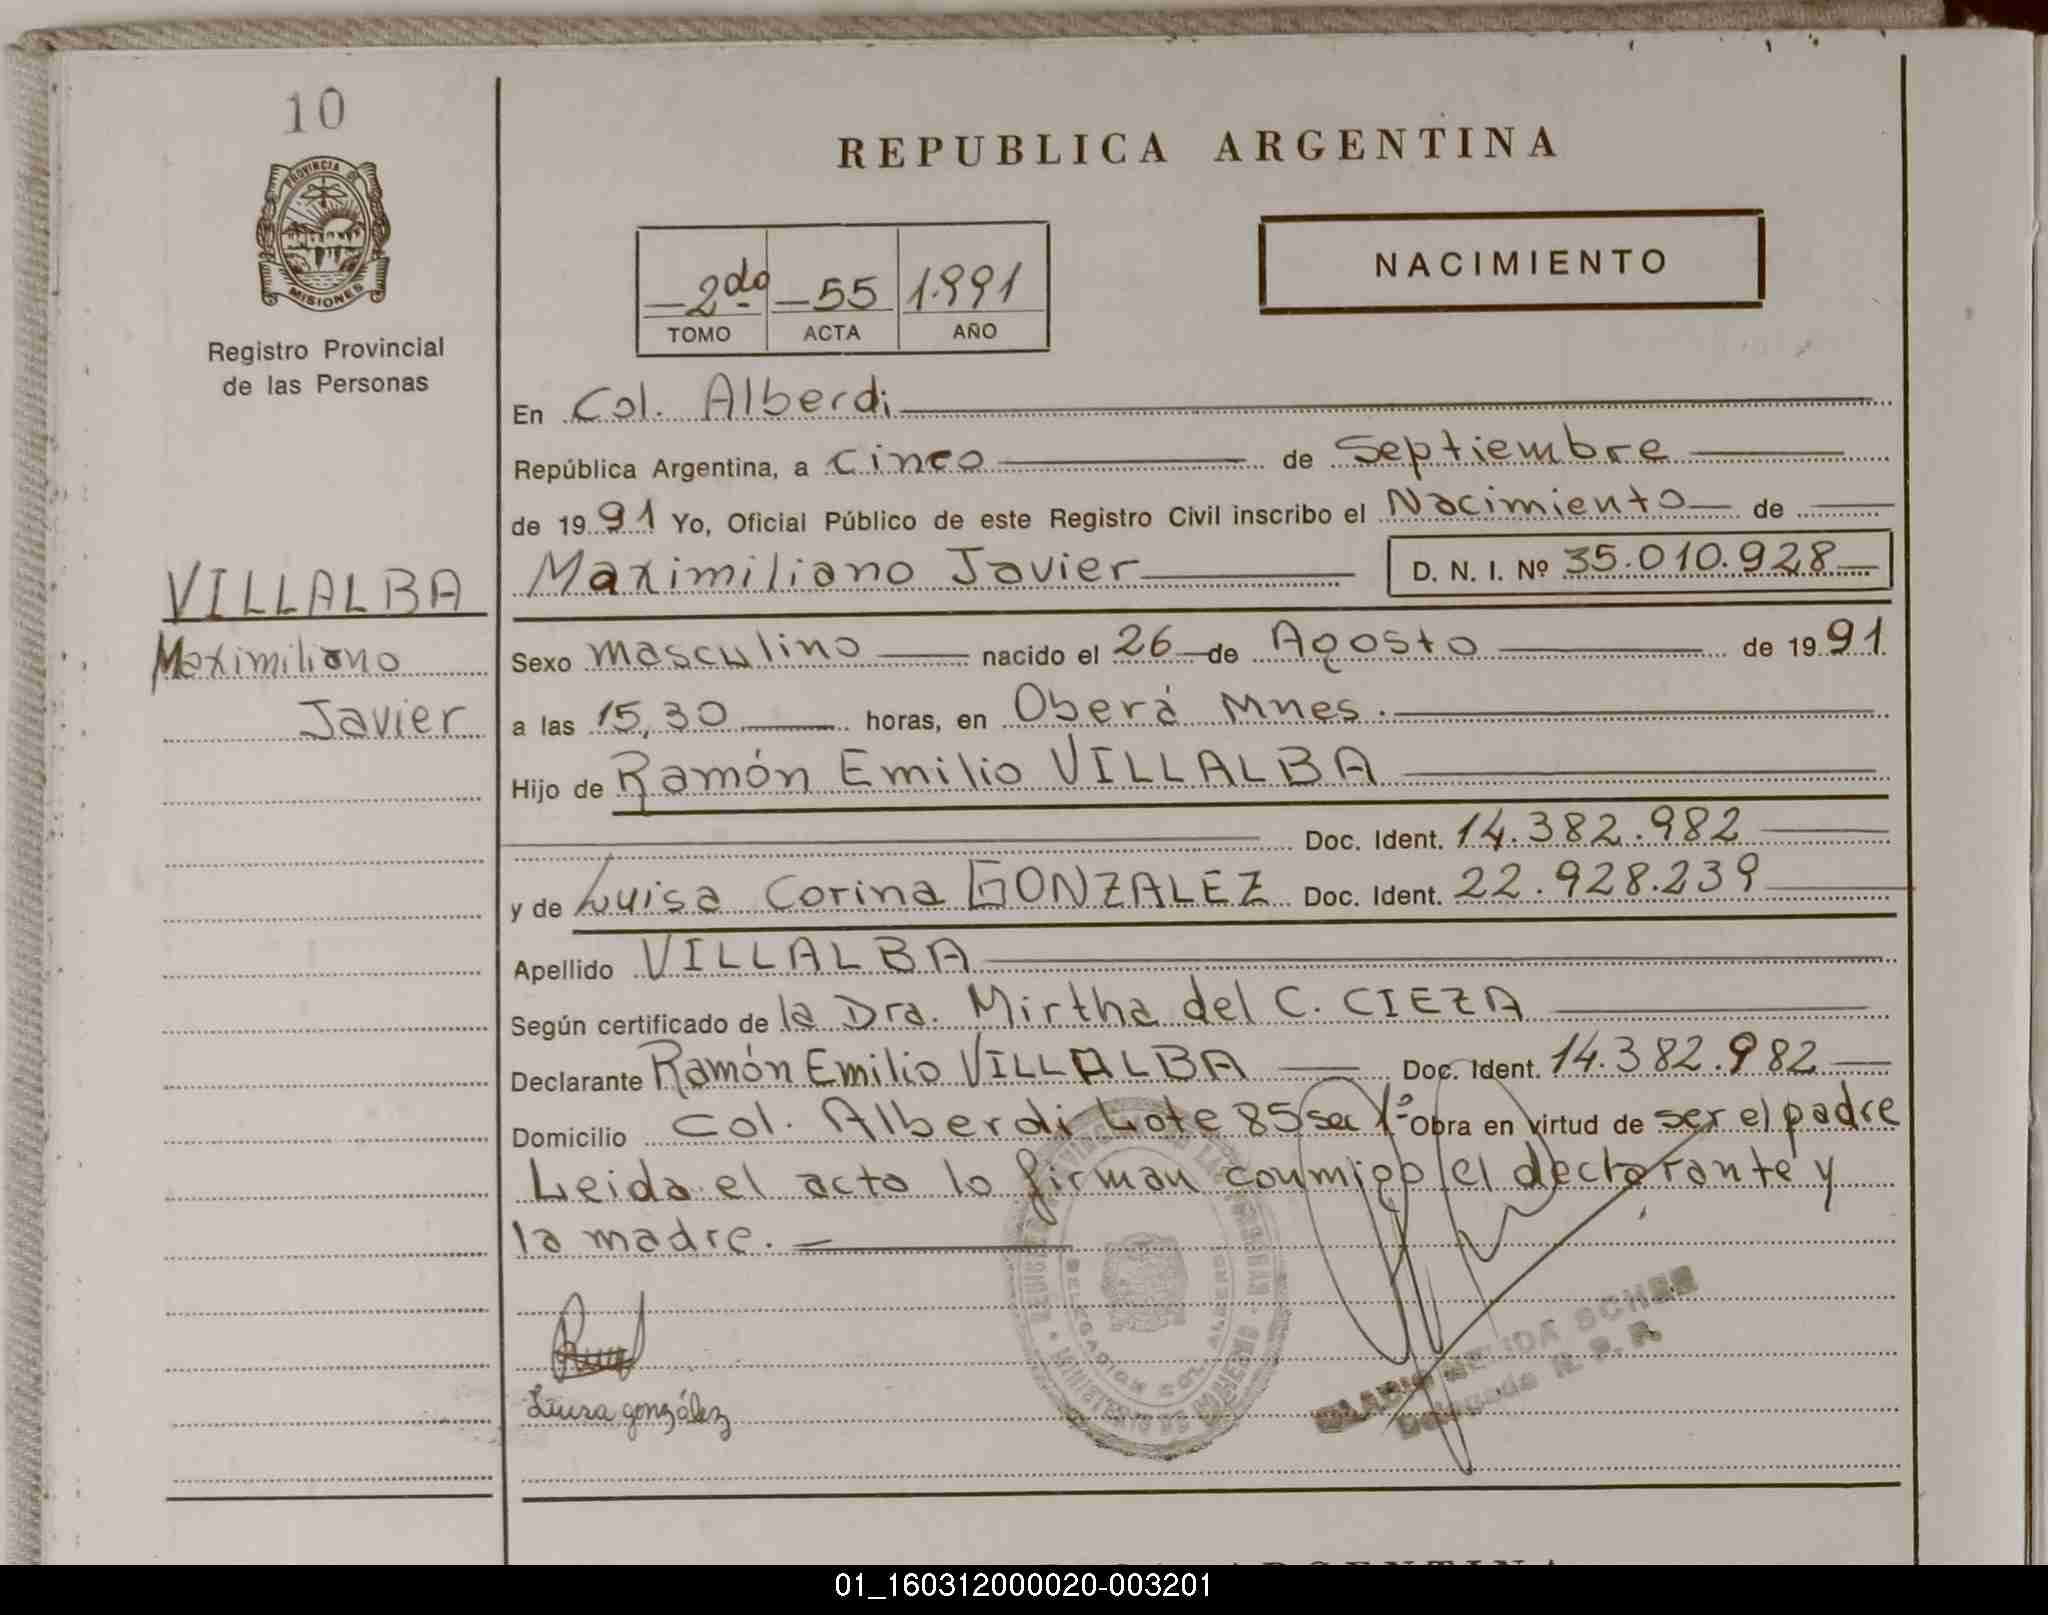 10
PROVINCIA DE
MISIONES
Registro Provincial
de las Personas
VILLALBA
Maximiliano
Javier
REPUBLICA ARGENTINA
NACIMIENTO
2do 55 1.991
TOMO ACTA AÑO
En Col. Alberdi
República Argentina, a cinco de Septiembre
de 1991 Yo, Oficial Público de este Registro Civil inscribo el Nacimiento de
Maximiliano Javier D. N. I. Nº 35.010.928
Sexo masculino nacido el 26 de Agosto de 1991.
a las 15,30 horas, en Oberá Mnes.
Hijo de Ramón Emilio VILLALBA
Doc. Ident. 14.382.982
y de Luisa Corina GONZALEZ Doc. Ident. 22.928.239
Apellido VILLALBA
Según certificado de la Dra. Mirtha del C. CIEZA
Declarante Ramón Emilio VILLALBA Doc. Ident. 14.382.982
Domicilio Col. Alberdi Lote 85 sec 1º Obra en virtud de ser el padre
Leida el acta lo firman conmigo el declarante y
la madre.
DELEGACION COL. ALBERDI
Luisa gonzález
NELIDA
Delegada R. P. P.
ARGENTINA
01_160312000020-003201